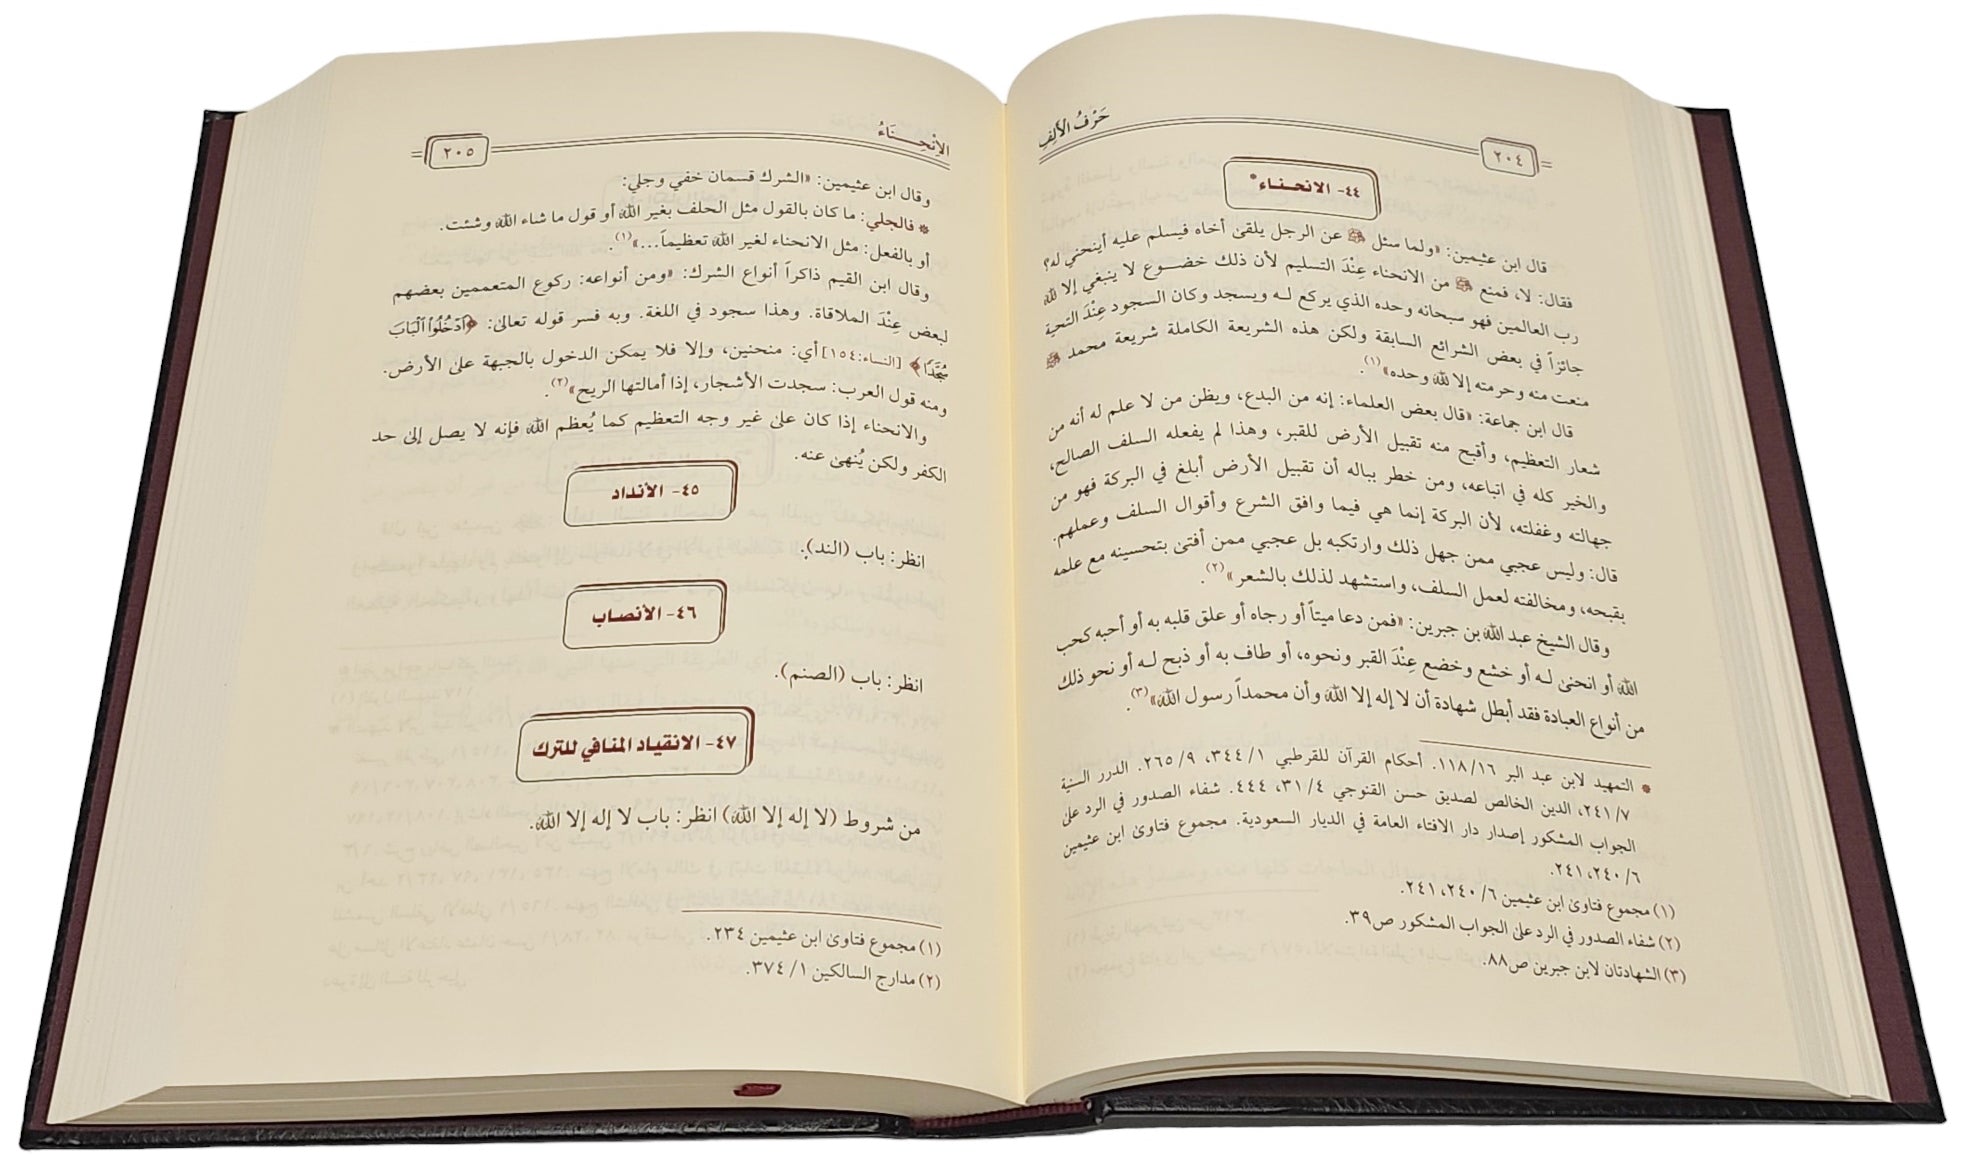 حَرْفُ الأَلِفِ
٢٠٤
٤٤- الانحناء*
قال ابن عثيمين: «ولما سئل ﷺ عن الرجل يلقى أخاه فيسلم عليه أينحني له؟
فقال: لا، فمنع ﷺ من الانحناء عِنْدَ التسليم لأن ذلك خضوع لا ينبغي إلا لله
رب العالمين فهو سبحانه وحده الذي يركع له ويسجد وكان السجود عِنْدَ التحية
جائزاً في بعض الشرائع السابقة ولكن هذه الشريعة الكاملة شريعة محمد ﷺ
منعت منه وحرمته إلا لله وحده»(١).
قال ابن جماعة: «قال بعض العلماء: إنه من البدع، ويظن من لا علم له أنه من
شعار التعظيم، وأقبح منه تقبيل الأرض للقبر، وهذا لم يفعله السلف الصالح،
والخير كله في اتباعه، ومن خطر بباله أن تقبيل الأرض أبلغ في البركة فهو من
جهالته وغفلته، لأن البركة إنما هي فيما وافق الشرع وأقوال السلف وعملهم.
قال: وليس عجبي ممن جهل ذلك وارتكبه بل عجبي ممن أفتى بتحسينه مع علمه
بقبحه، ومخالفته لعمل السلف، واستشهد لذلك بالشعر»(٢).
وقال الشيخ عبد الله بن جبرين: «فمن دعا ميتاً أو رجاه أو علق قلبه به أو أحبه كحب
الله أو انحنى له أو خشع وخضع عِنْدَ القبر ونحوه، أو طاف به أو ذبح له أو نحو ذلك
من أنواع العبادة فقد أبطل شهادة أن لا إله إلا الله وأن محمداً رسول الله»(٣).
* التمهيد لابن عبد البر ١١٨/١٦. أحكام القرآن للقرطبي ٣٤٤/١، ٢٦٥/٩. الدرر السنية
٢٤١/٧، الدين الخالص لصديق حسن القنوجي ٣١/٤، ٤٤٤. شفاء الصدور في الرد على
الجواب المشكور إصدار دار الافتاء العامة في الديار السعودية. مجموع فتاوى ابن عثيمين
٢٤٠/٦، ٢٤١.
(١) مجموع فتاوى ابن عثيمين ٢٤٠/٦، ٢٤١.
(٢) شفاء الصدور في الرد على الجواب المشكور ص٣٩.
(٣) الشهادتان لابن جبرين ص٨٨.
الانْحِنَاءُ
٢٠٥
وقال ابن عثيمين: «الشرك قسمان خفي وجلي:
* فالجلي: ما كان بالقول مثل الحلف بغير الله أو قول ما شاء الله وشئت.
أو بالفعل: مثل الانحناء لغير الله تعظيماً...»(١).
وقال ابن القيم ذاكراً أنواع الشرك: «ومن أنواعه: ركوع المتعممين بعضهم
لبعض عِنْدَ الملاقاة. وهذا سجود في اللغة. وبه فسر قوله تعالى: ﴿ادْخُلُوا الْبَابَ
سُجَّدًا﴾ [النساء:١٥٤] أي: منحنين، وإلا فلا يمكن الدخول بالجبهة على الأرض.
ومنه قول العرب: سجدت الأشجار، إذا أمالتها الريح»(٢).
والانحناء إذا كان على غير وجه التعظيم كما يُعظم الله فإنه لا يصل إلى حد
الكفر ولكن يُنهى عنه.
٤٥- الأنداد
انظر: باب (الند).
٤٦- الأنصاب
انظر: باب (الصنم).
٤٧- الانقياد المنافي للترك
من شروط (لا إله إلا الله) انظر: باب لا إله إلا الله.
(١) مجموع فتاوى ابن عثيمين ٢٣٤.
(٢) مدارج السالكين ٣٧٤/١.